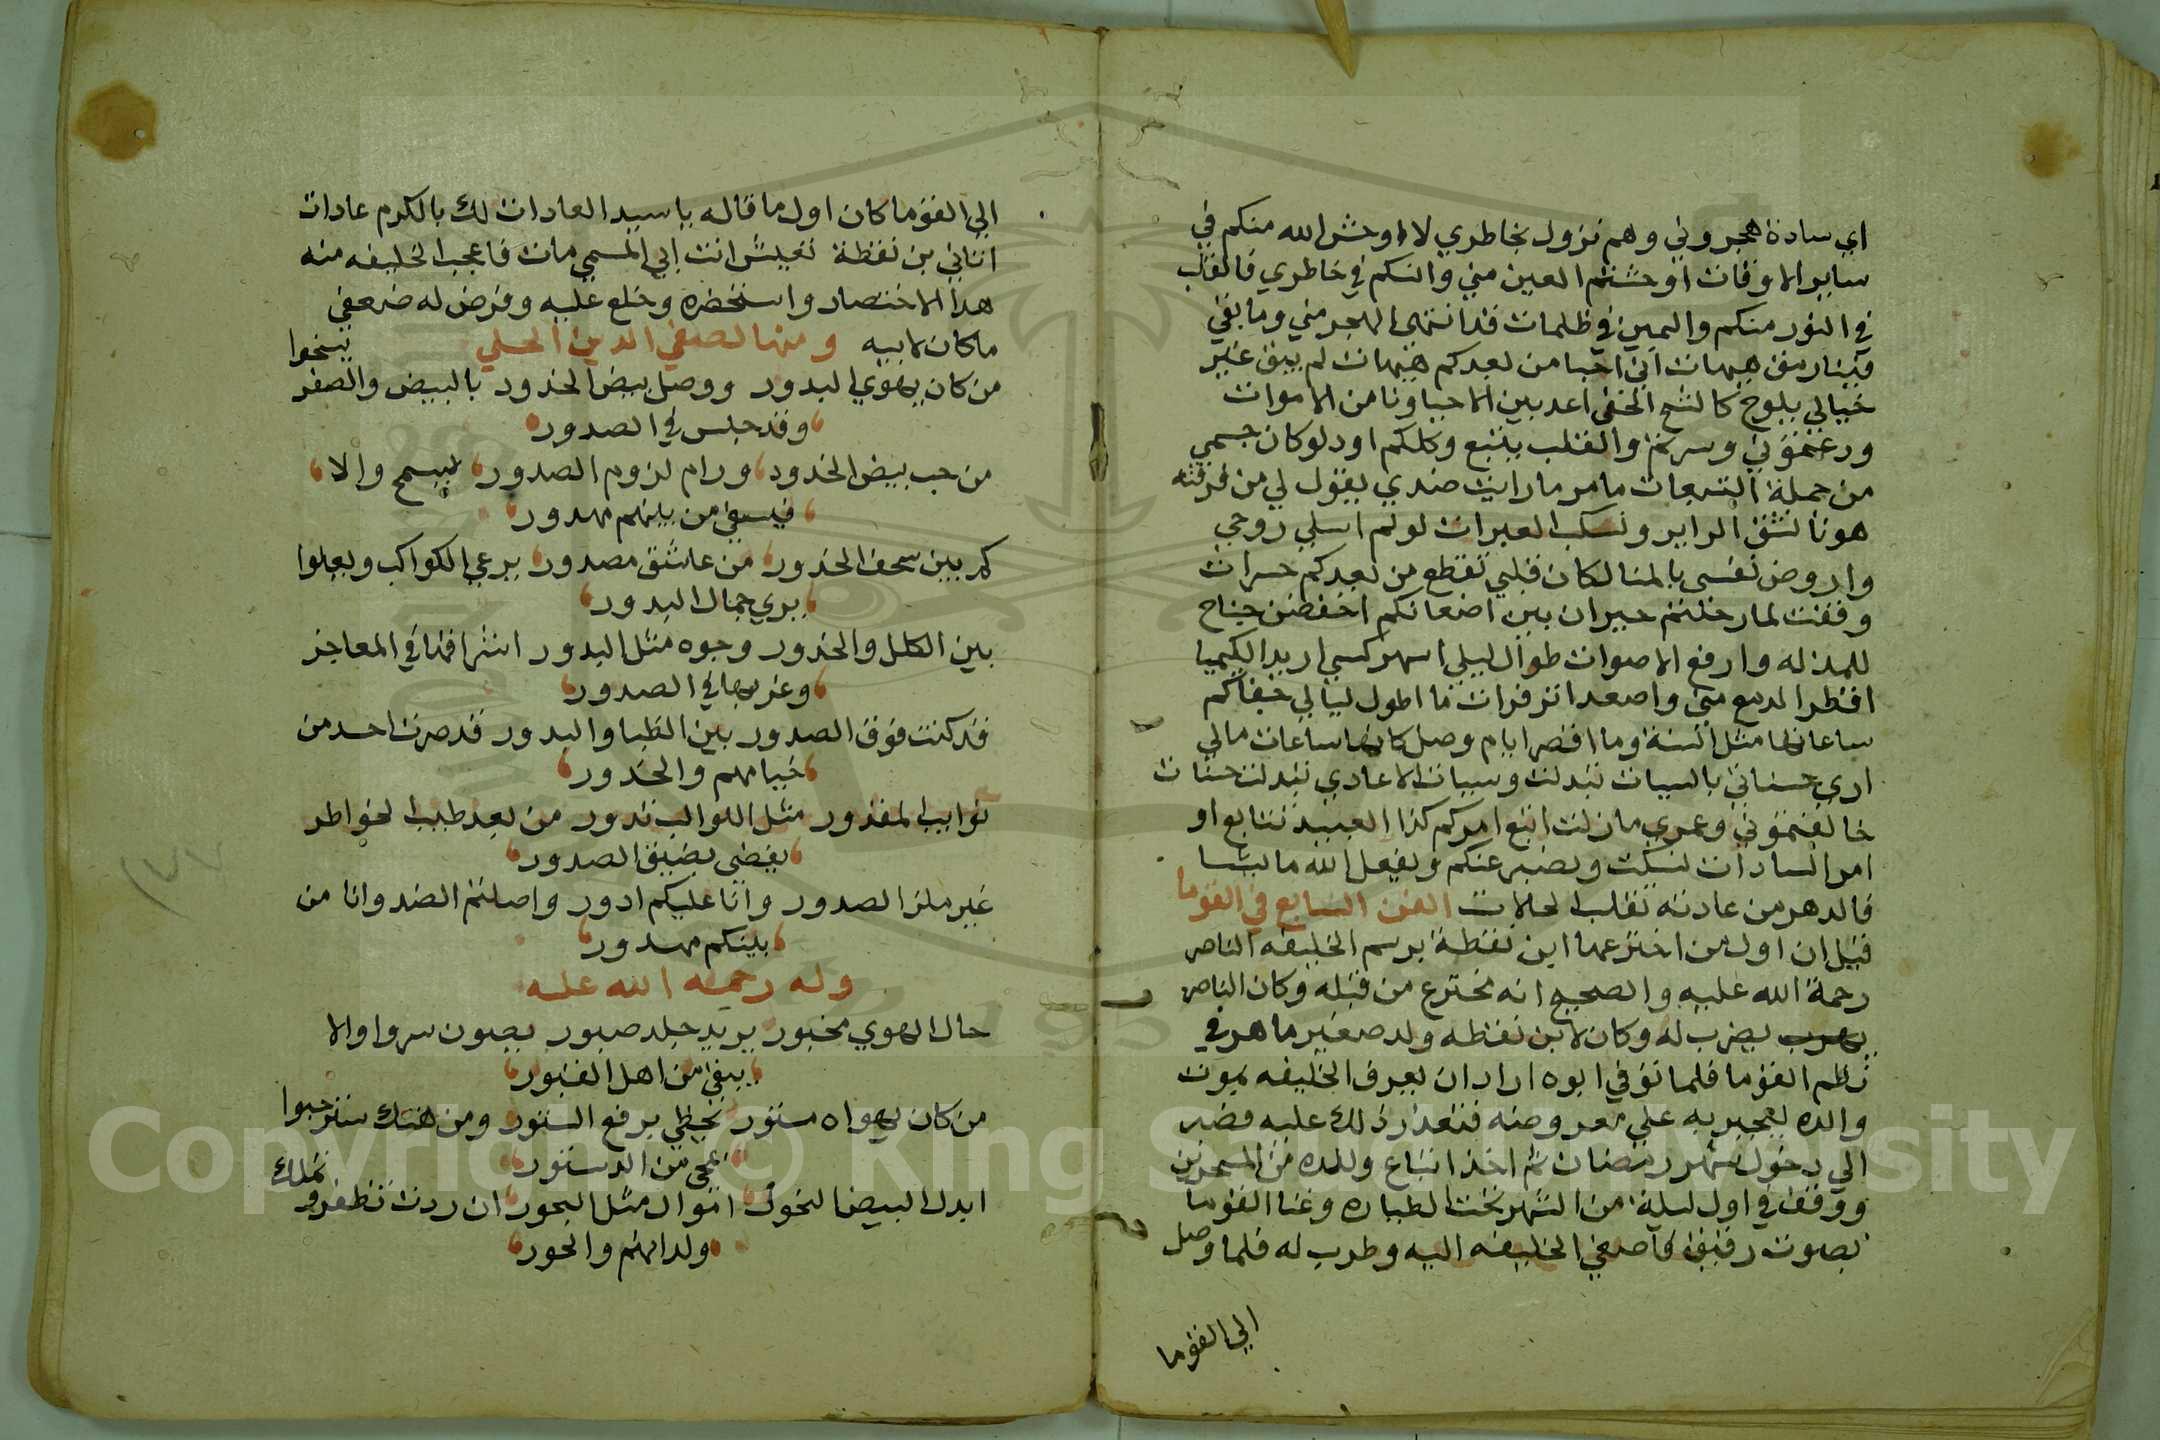 اي سادة هجروني وهم نزول بخاطري لا اوحش الله منكم في
ساير الاوقات اوحشتم العين مني وانسكم في خاطري فالقلب
في النور منكم والعين في ظلمات قد انتهى الهجر مني وما بقي
فينا رمق هيهات ان احيا من بعدكم هيهات لم يبق غير
خيالي يلوح كالشبح الخفي اعد بين الاحيا وانا من الاموات
ودعتموني وسرتم والقلب يتبع وكلكم اود لو كان جسمي
من جملة التبعات ما مر ما رايت ضدي يقول لي من فرقته
هونا لشق المراير وتسكب العبرات لو لم اسلي روحي
واروض نفسي بالمنا لكان قلبي تقطع من بعدكم حسرات
وقفت لما رحلتم حيران بين اضعانكم اخفض جناح
للمذله وارفع الاصوات طوال ليلي اسهر كسي اريد الكيميا
اقطر الدمع مني واصعد الزفرات ما اطول ليالي جفاكم
ساعاتها مثل السنة وما اقصر ايام وصل كانها ساعات مالي
اري حسناتي بالسيات تبدلت وسيات الاعادي تبدلت حسنات
خالفتموني وعمري ما زلت اتبع امركم كذا العبيد تتابع او
امر السادات نسكت ونصبر عنكم ويفعل الله ما يشا
فالدهر من عادته تقلب الحالات الفن السابع في القوما
قيل ان اول من اخترعها ابن نقطة برسم الخليفه الناصر
رحمة الله عليه والصحيح انه مخترع من قبله وكان الناصر
يطرب له وكان لابن نقطه ولد صغير ماهر في
نظم القوما فلما توفي ابوه اراد ان يعرف الخليفه بموت
والده ليجريه علي معروضه فتعذر ذلك عليه فصبر
الي دخول شهر رمضان ثم اخذ اتباع والده من المسحرين
ووقف في اول ليلة من الشهر تحت الطياره وغنا القوما
بصوت رقيق فاصغي الخليفه اليه وطرب له فلما وصل
الي القوما
الي القوما كان اول ما قاله يا سيد السادات لك بالكرم عادات
انا ابن نقطة تعيش انت ابي المسمي مات فاعجب الخليفه منه
هذا الاختصار واستحضره وخلع عليه وفرض له ضعفي
ما كان لابيه ومنها لصفي الدين الحلي
من كان يهوي البدور ووصل بيض الخدور بالبيض والصفر يسخوا
وقد جلس في الصدور
من حب بيض الخدود ورام لزوم الصدور يسمح والا
فيبقي من بينهم مهدور
كم بين سجف الخدور من عاشق مصدور يرعي الكواكب ولعلوا
يري جمال البدور
بين الكلل والخدور وجوه مثل البدور اشراقها في المعاجز
وغربها في الصدور
قد كنت فوق الصدور بين الظبا والبدور قد صرت احسد من
خيامهم والخدور
نوايب المقدور مثل اللوالب تدور من بعد طيب الخواطر
يقضي بضيق الصدور
غير ملز الصدور وانا عليكم ادور واصلتم الضد وانا من
بينكم مهدور
وله رحمة الله عليه
حال الهوي مخبور يريد جلد صبور يصون سروا والا
يبقي من اهل القبور
من كان يهواه مستور يحظي برفع الستور ومن هتك ستر حبوا
نمحي من الدستور
ابدل لبيض النحور اموال مثل البحور ان ردت تظفر وتملك
ولدانهم والحور